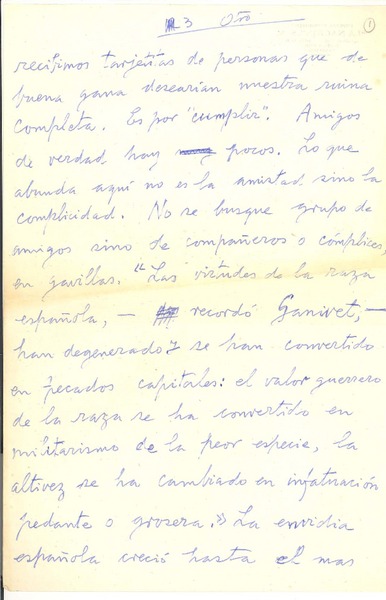 3 Otro
1
recibimos tarjetitas de personas que de
buena gana desearían nuestra ruina
completa. Es por "cumplir". Amigos
de verdad hay pocos. Lo que
abunda aquí no es la amistad sino la
complicidad. No se busque grupo de
amigos sino de compañeros o cómplices,
en gavillas. "Las virtudes de la raza
española, — recordó Ganivet, —
han degenerado y se han convertido
en pecados capitales: el valor guerrero
de la raza se ha convertido en
militarismo de la peor especie, la
altivez se ha cambiado en infatuación
pedante o grosera.» La envidia
española creció hasta el mas